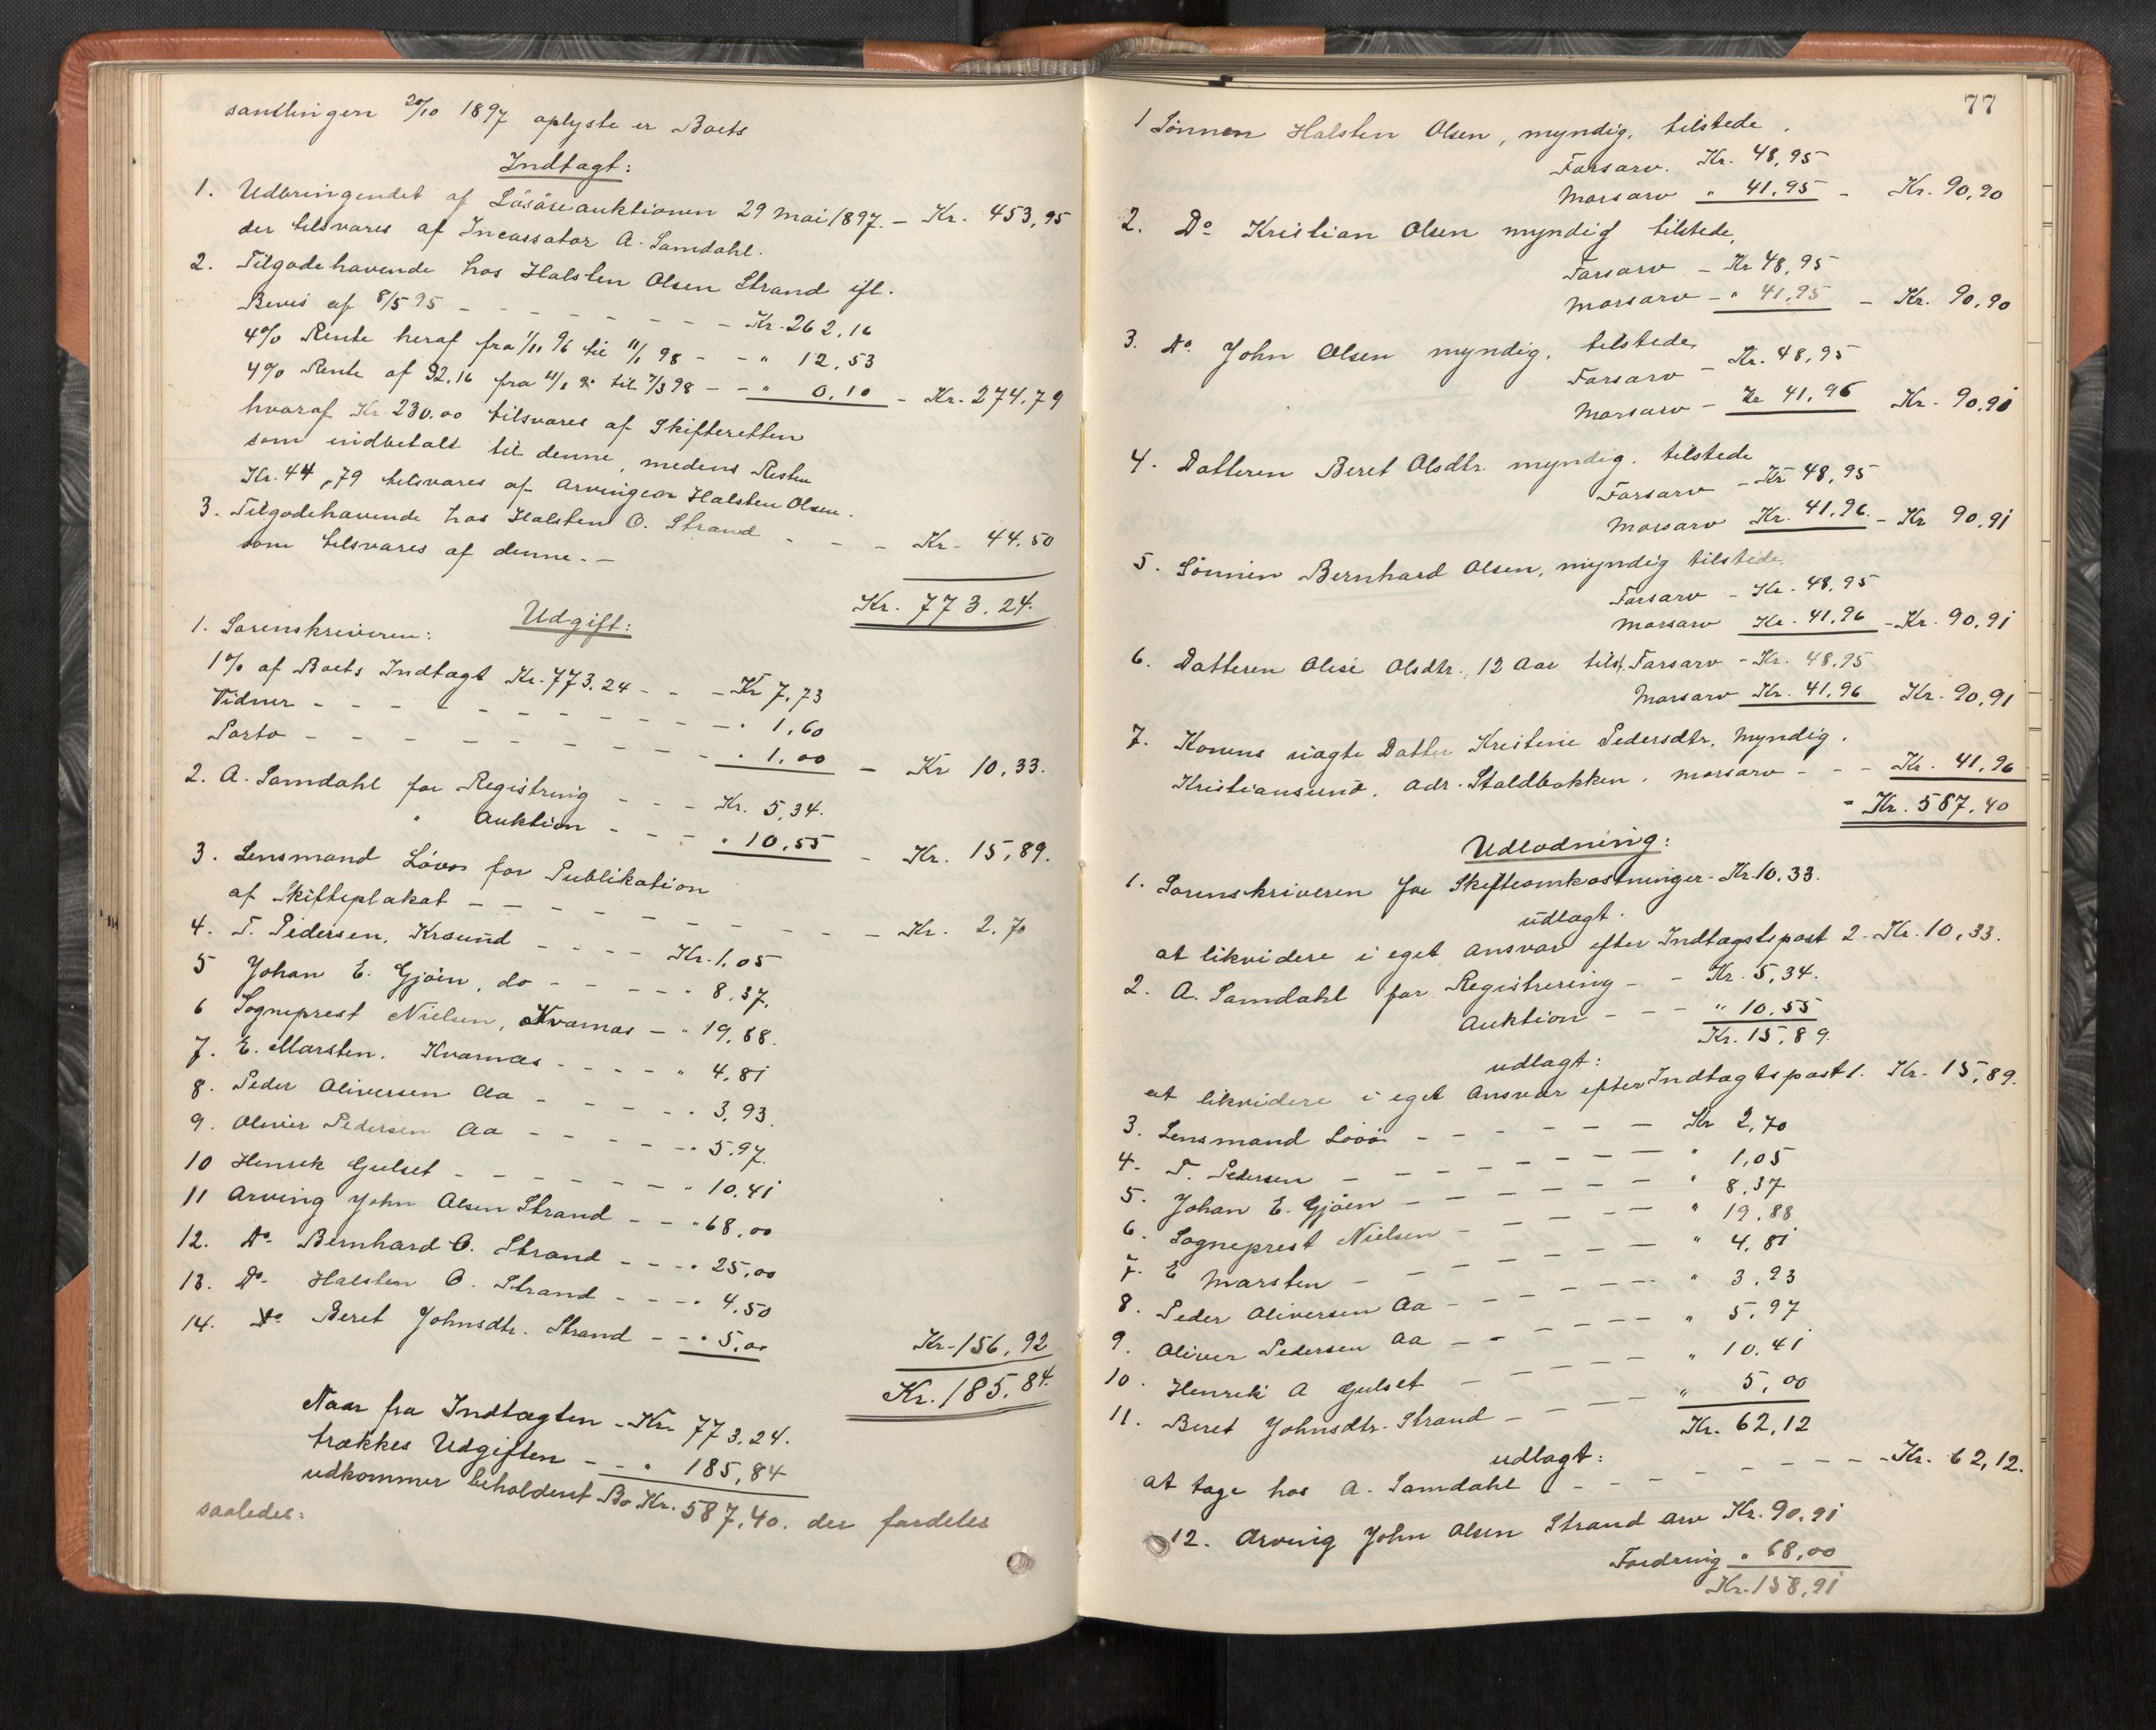 samlingen 20/10 1897 oplyste er Boets
Indtægt:
1. Udbringendet af Løsøreauktionen 29 Mai 1897. – Kr. 453,95
der tilsvares af Incassator A. Samdahl.
2. Tilgodehavende hos Halsten Olsen Strand ifl.
Bevis af 8/5 95 – – – – – – – Kr. 262,16
4% Rente heraf fra 1/11 96 til 11/1 98 – – " 12,53
4% Rente af 32,16 fra 11/1 98 til 7/3 98 – – " 0,10 – Kr. 274,79
hvoraf Kr. 230.00 tilsvares af Skifteretten
som indbetalt til denne, medens Resten
Kr. 44,79 tilsvares af Arvingen Halsten Olsen.
3. Tilgodehavende hos Halsten O. Strand – – – Kr. 44.50
som tilsvares af denne. –
Kr. 773.24.
Udgift:
1. Sorenskriveren:
1% af Boets Indtægt Kr. 773.24 – – – Kr 7,73
Vidner – – – – – – – – – – " 1,60
Porto – – – – – – – – – – " 1,00 – Kr 10,33.
2. A. Samdahl for Registrering – – – Kr. 5,34.
" Auktion – – – – " 10,55 – Kr. 15,89.
3. Lensmand Løvø for Publikation
af Skifteplakat – – – – – – – – – – Kr. 2,70
4. T. Pedersen, Krsund – – – – Kr. 1,05
5 Johan E. Gjøen, do – – – – – " 8,37.
6 Sogneprest Nielsen, Kvarnæs – " 19,88.
7. E. Marsten. Kvarnæs – – – – " 4,81
8. Peder Oliversen Aa – – – – – " 3,93.
9. Oliver Pedersen Aa – – – – – " 5.97.
10 Henrik Gulset – – – – – – – " 10,41
11 Arving John Olsen Strand – – " 68,00
12. Do. Bernhard O. Strand – – – " 25,00
13. Do. Halsten O. Strand – – – " 4.50
14. Do Beret Johnsdtr. Strand – – " 5,00 Kr. 156,92
Kr. 185,84.
Naar fra Indtægten – Kr. 773.24.
trækkes Udgiften – – " 185,84
udkommer beholdent Bo Kr. 587,40. der fordeles
saaledes:
77
1 Sønnen Halsten Olsen, myndig, tilstede.
Farsarv. Kr. 48,95
Morsarv " 41,95 – Kr. 90,90
2. Do Kristian Olsen myndig tilstede,
Farsarv – Kr 48,95
Morsarv – " 41,95 – Kr. 90,90
3. Do. John Olsen myndig. tilstede,
Farsarv – Kr. 48,95
Morsarv – Kr 41,96 Kr. 90,91
4. Datteren Beret Olsdtr. myndig. tilstede
Farsarv – Kr 48,95
Morsarv Kr. 41,96. – Kr 90,91
5. Sønnen Bernhard Olsen, myndig tilstede,
Farsarv – Kr. 48,95
Morsarv Kr. 41,96 – Kr. 90,91
6. Datteren Olise Olsdtr., 12 Aar tilst. Farsarv – Kr. 48,95
Morsarv Kr. 41,96 Kr. 90,91
7. Konens uægte Datter Kristine Pedersdtr. Myndig.
Kristiansund, adr. Staldbakken. Morsarv – – – Kr. 41,96
– Kr. 587,40
Udlodning:
1. Sorenskriveren for Skifteomkostninger – Kr. 10,33.
udlagt:
at likvidere i eget Ansvar efter Indtægtspost 2 – Kr. 10,33.
2. A. Samdahl for Registrering – – Kr. 5,34.
Auktion – – – " 10,55
Kr. 15,89.
udlagt:
at likvidere i eget Ansvar efter Indtægtspost 1. Kr. 15,89.
3. Lensmand Løvø – – – – – – Kr 2,70
4. T. Pedersen – – – – – – – " 1,05
5. Johan E. Gjøen – – – – – – " 8,37
6. Sogneprest Nielsen – – – – – " 19,88
7. E Marsten – – – – – – – " 4,81
8. Peder Oliversen Aa – – – – – " 3,93
9. Oliver Pedersen Aa – – – – – " 5,97
10. Henrik A Gulset – – – – – " 10,41
11. Beret Johnsdtr. Strand – – – – " 5,00
Kr. 62,12
udlagt:
at tage hos A. Samdahl – – – – – – – – – Kr. 62,12.
12. Arving John Olsen Strand Arv Kr. 90,91
Fordring " 68,00
Kr. 158,91